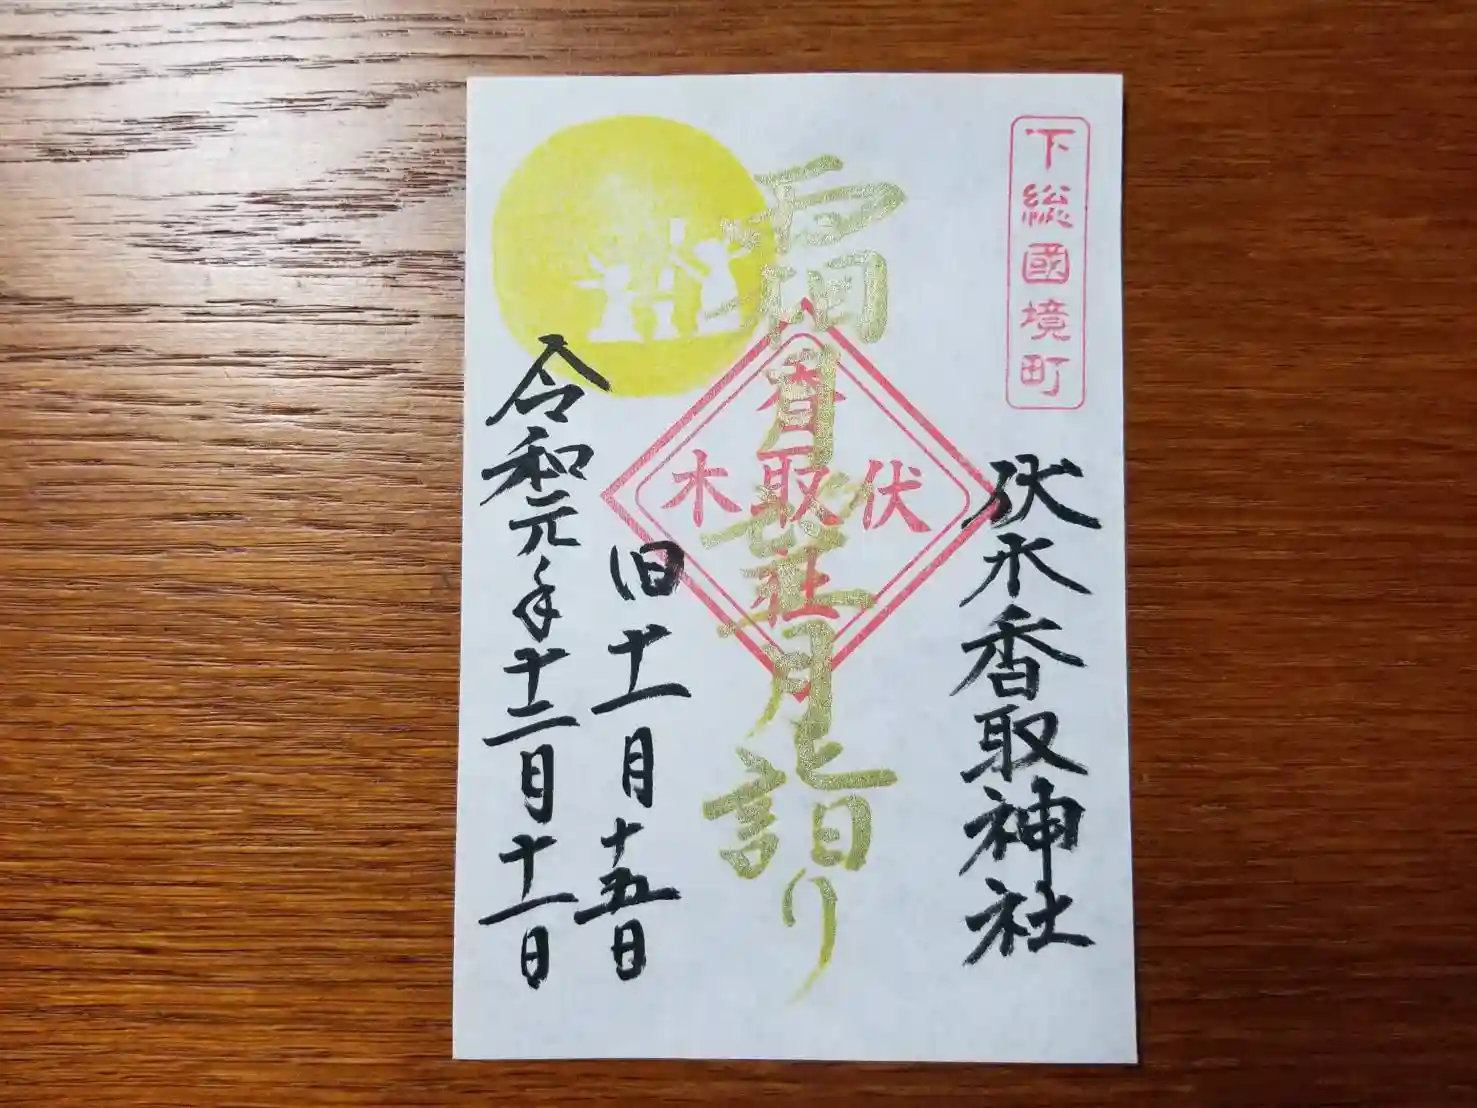 下総國境町
伏木香取神社
霜月望月詣り
香取社
伏木
旧十一月十五日
令和元年十二月十一日